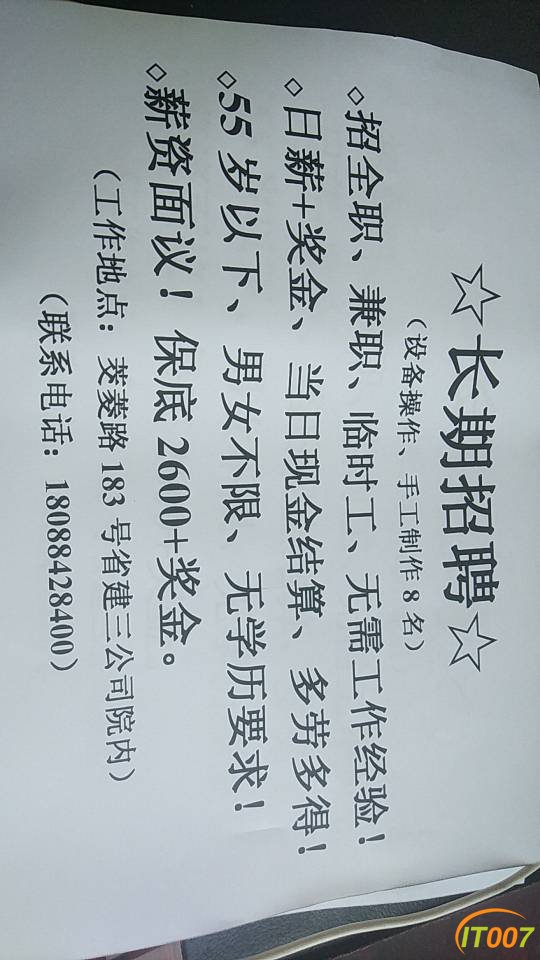 ☆长期招聘☆
（设备操作、手工制作 8 名）
◇招全职、兼职、临时工、无需工作经验！
◇日薪+奖金、当日现金结算、多劳多得！
◇55 岁以下、男女不限、无学历要求！
◇薪资面议！保底 2600+奖金。
（工作地点：茭菱路 183 号省建三公司院内）
（联系电话：18088428400）
IT007